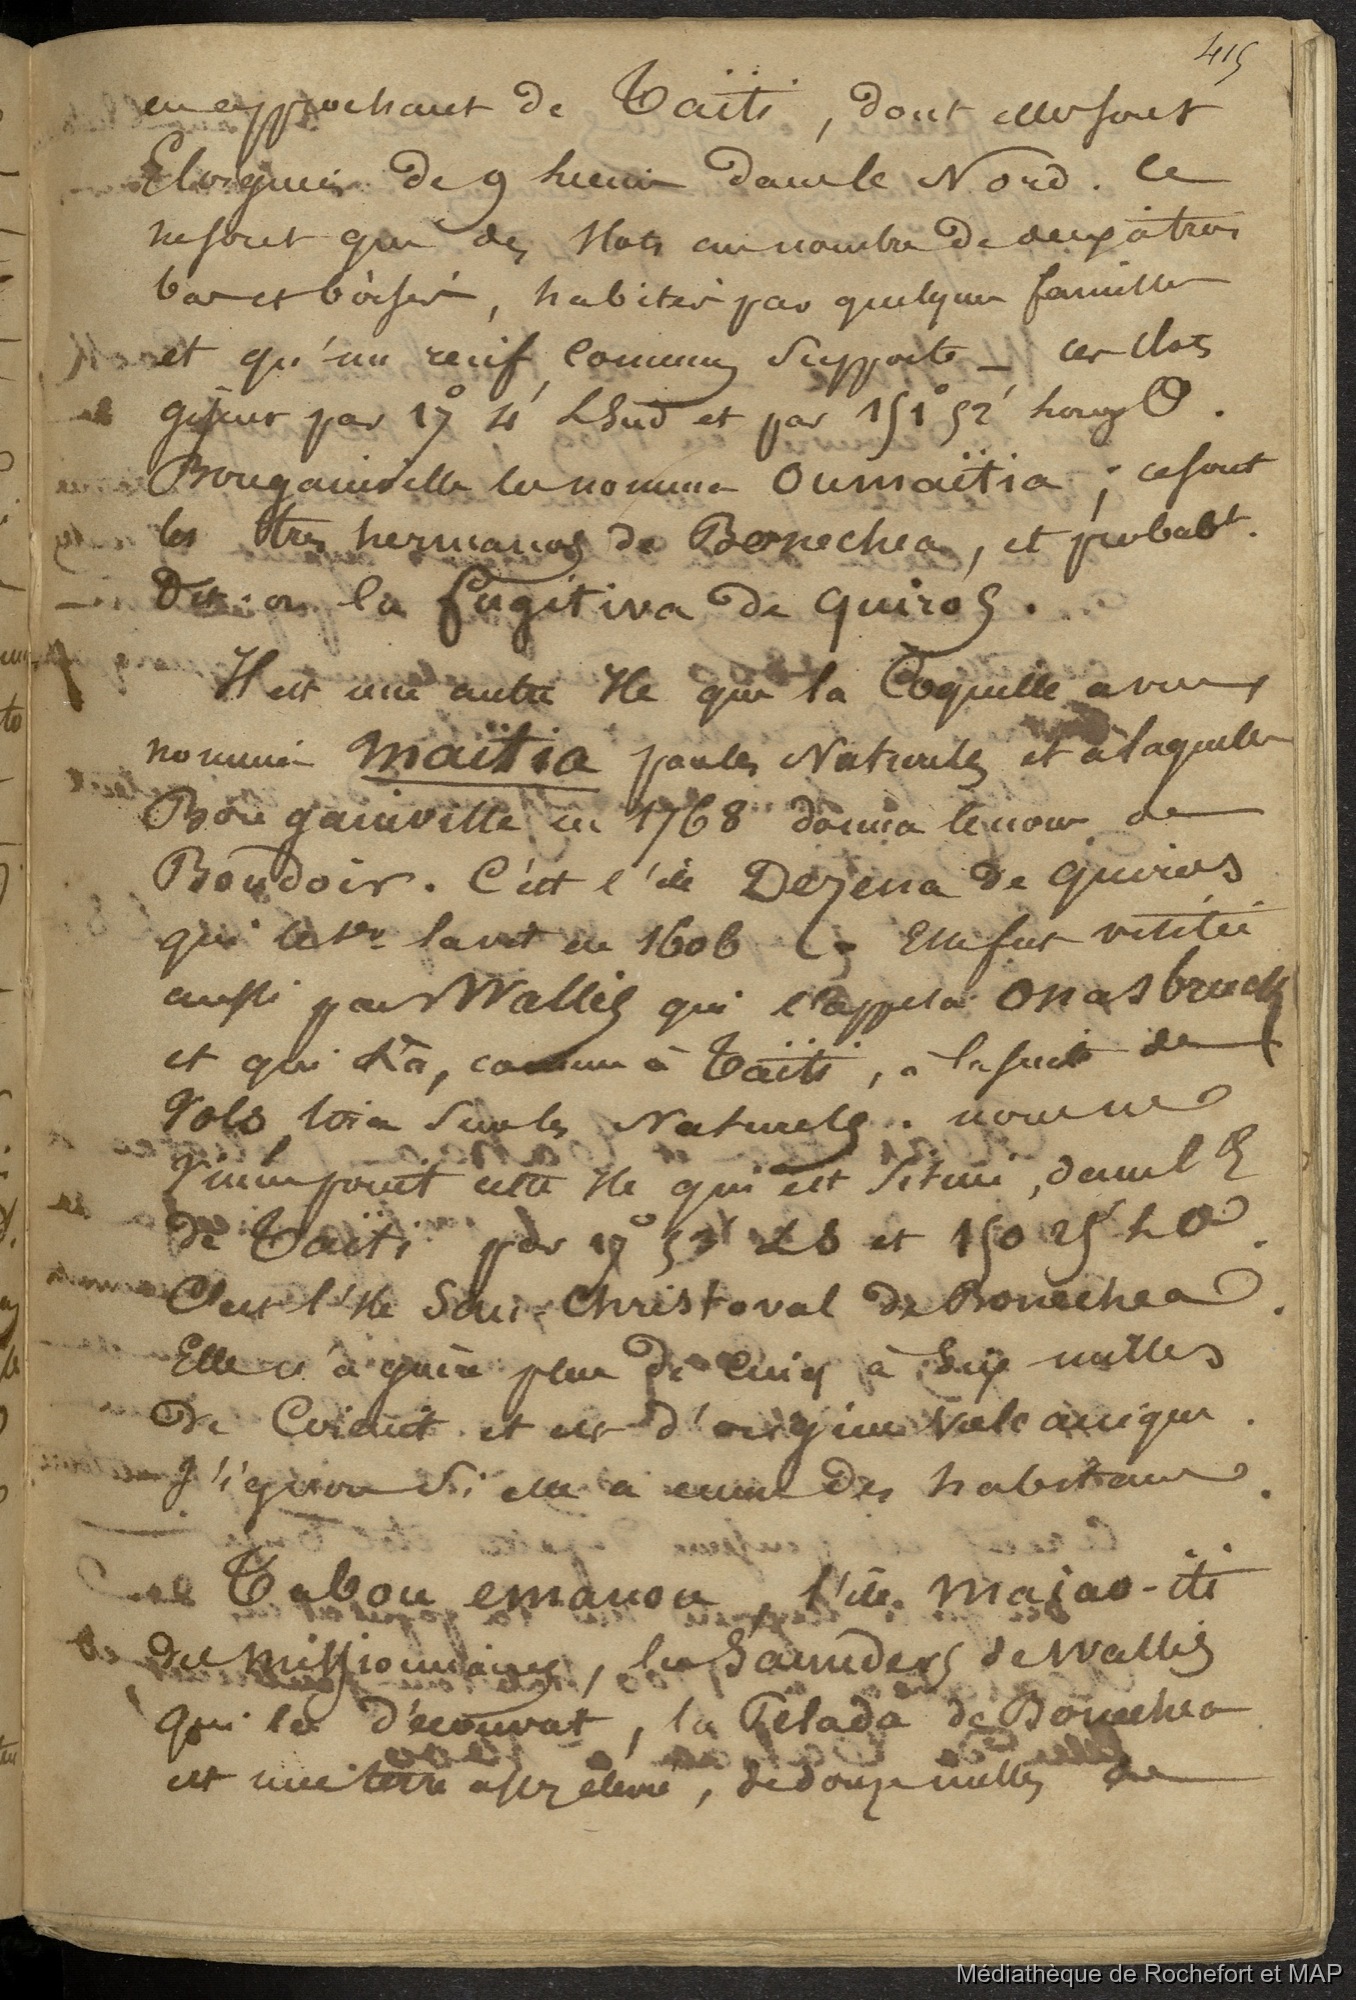 415
en approchant de Taïti, dont elles sont
Eloignées de 9 lieues dans le Nord. Ce
ne sont que des Ilots au nombre de deux à trois
bas et boisés, habités par quelques familles
et qu'un récif commun Supporte _ ces Ilots
gisent par 17° 4' LSud et par 151° 52' long O.
Bougainville les nomme Oumaïtia ; ce sont
les tres hermanos de Bonechea, et probabt.
Dit-on la fugitiva de quiros.
Il est une autre Ile que la Coquille a vue,
nommée Maïtia par les Naturels et à laquelle
Bougainville en 1768 donna le nom de
Boudoir. C'est l'île Dezena de quiros
qui le 1er la vit en 1606 _ Elle fut visitée
aussi par Wallis qui l'appela Onasbruck
et qui là, comme à Taïti, a la suite de
Vols tira sur les Naturels. nous ne
Vimes point cette Ile qui est située, dans l'E
de Taïti par 17° 53' LS et 150 25' LO.
C'est l'Ile San-Christoval de Bonechea.
Elle n'a guère plus de cinq à Six milles
de Circuit et est d'origine Volcanique.
J'ignore Si elle a encore des habitans.
Tabou emanou, l'île Maiao-iti
des Missionnaires, la Saunders de Wallis
qui la découvrit, la Pelada de Bonechea
est une terre assez élevée, de douze milles de
Médiathèque de Rochefort et MAP